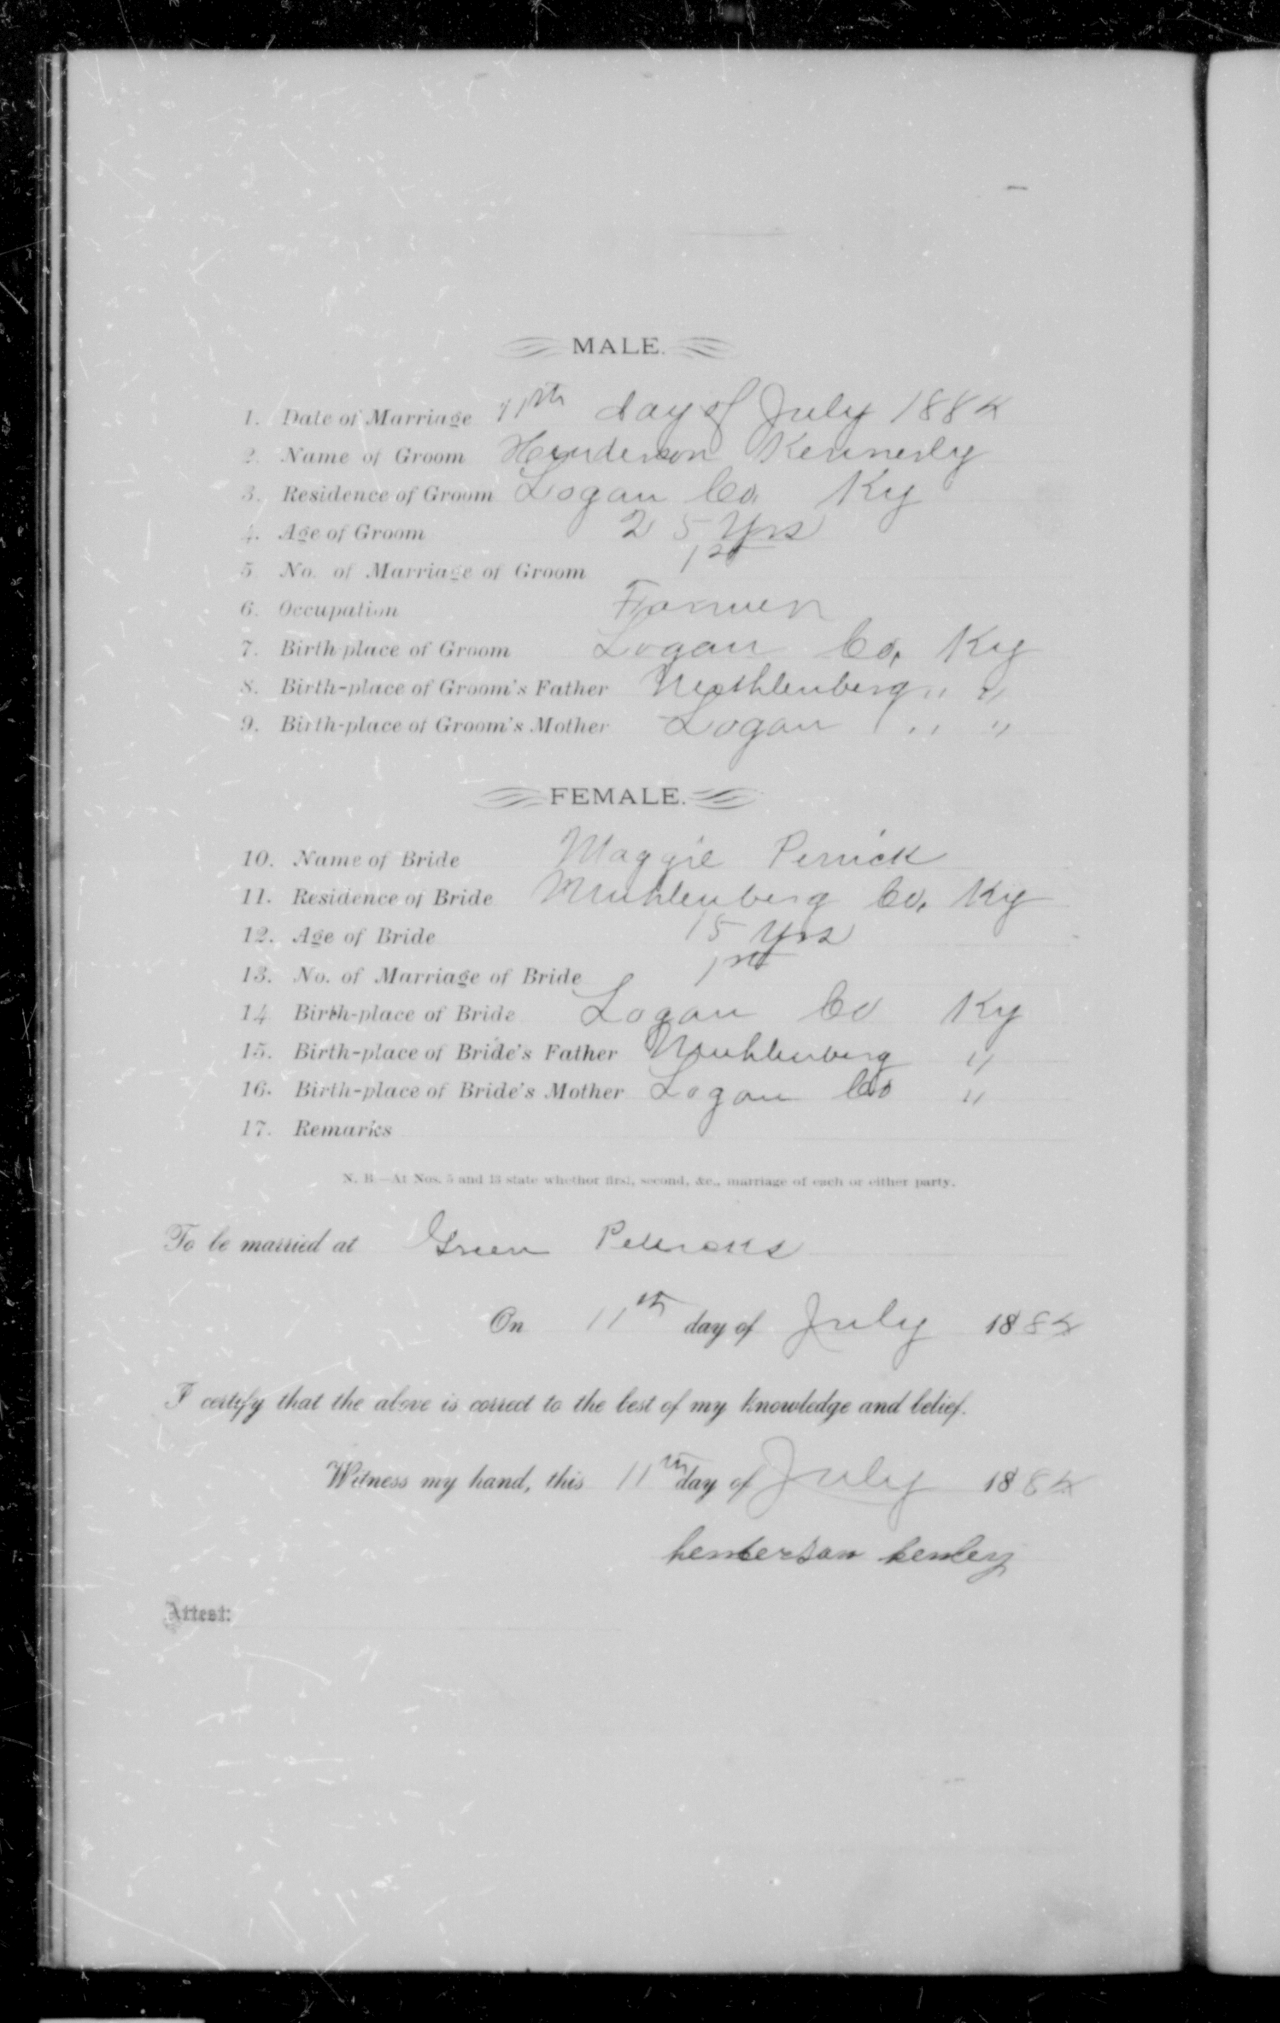 MALE.
1. Date of Marriage 11th day of July 1884
2. Name of Groom Henderson Kennerly
3. Residence of Groom Logan Co. Ky
4. Age of Groom 25 Yrs
5. No. of Marriage of Groom 1st
6. Occupation Farmer
7. Birth-place of Groom Logan Co, Ky
8. Birth-place of Groom's Father Muhlenberg " "
9. Birth-place of Groom's Mother Logan " "
FEMALE.
10. Name of Bride Maggie
11. Residence of Bride Muhlenberg Co, Ky
12. Age of Bride 15 Yrs
13. No. of Marriage of Bride 1st
14 Birth-place of Bride Logan Co Ky
15. Birth-place of Bride's Father Muhlenberg "
16. Birth-place of Bride's Mother Logan Co "
17. Remarks
N. B.—At Nos. 5 and 13 state whether first, second, &c., marriage of each or either party.
To be married at Green
On 11th day of July 1884
I certify that the above is correct to the best of my knowledge and belief.
Witness my hand, this 11th day of July 1884
henderson
Attest: